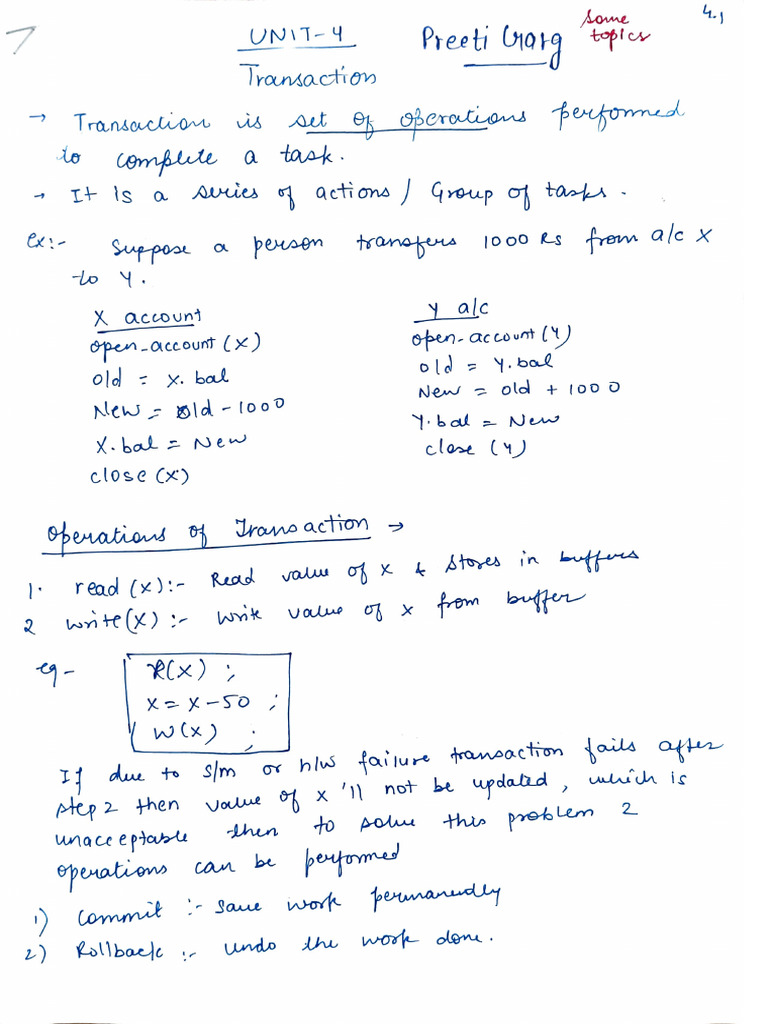 UNIT-4 Preeti Garg some topics 4.1
Transaction
→ Transaction is set of operations performed
to complete a task.
→ It is a series of actions / Group of tasks.
ex:- Suppose a person transfers 1000 Rs from a/c X
to Y.
X account
open-account (X)
old = X.bal
New = old - 1000
X.bal = New
close (X)
Y a/c
open-account (Y)
old = Y.bal
New = old + 1000
Y.bal = New
close (Y)
Operations of Transaction →
1. read (X):- Read value of X & stores in buffers
2 write(X) :- Write value of X from buffer
eg- R(X) ;
X = X - 50 ;
W(X) ;
If due to s/m or h/w failure transaction fails after
step 2 then value of X 'll not be updated, which is
unacceptable then to solve this problem 2
operations can be performed
1) Commit :- save work permanendly
2) Rollback :- undo the work done.